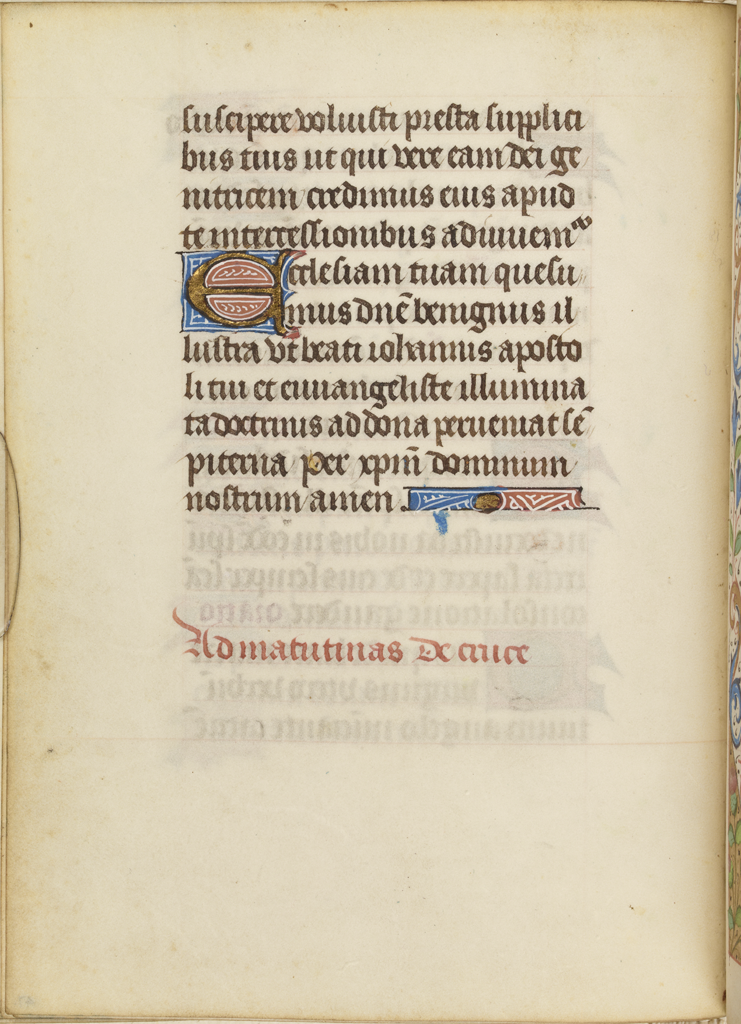 suscipere voluisti presta supplici
bus tuis ut qui vere eam dei ge
nitricem credimus eius apud
te intercessionibus adiuuemᷣ
Ecclesiam tuam quesu
mus dnē benignus il
lustra vt beati iohannis aposto
li tui et euuangeliste illumina
ta doctrinis ad dona perueniat sē
piterna per xpm̄ dominum
nostrum amen.
Ad matutinas De cruce